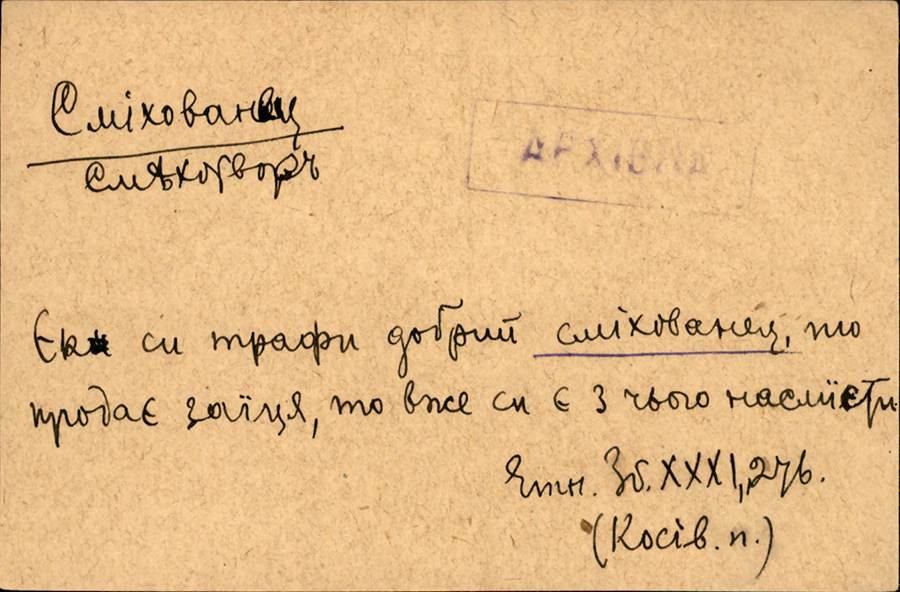 Сміхованец
смѣхотворъ
АРХІВНА
Єк си трафи добрий сміхованец, то
продає заїця, то вже си є з чього насмієти
Етн. Зб. XXXI, 276.
(Косів. п.)